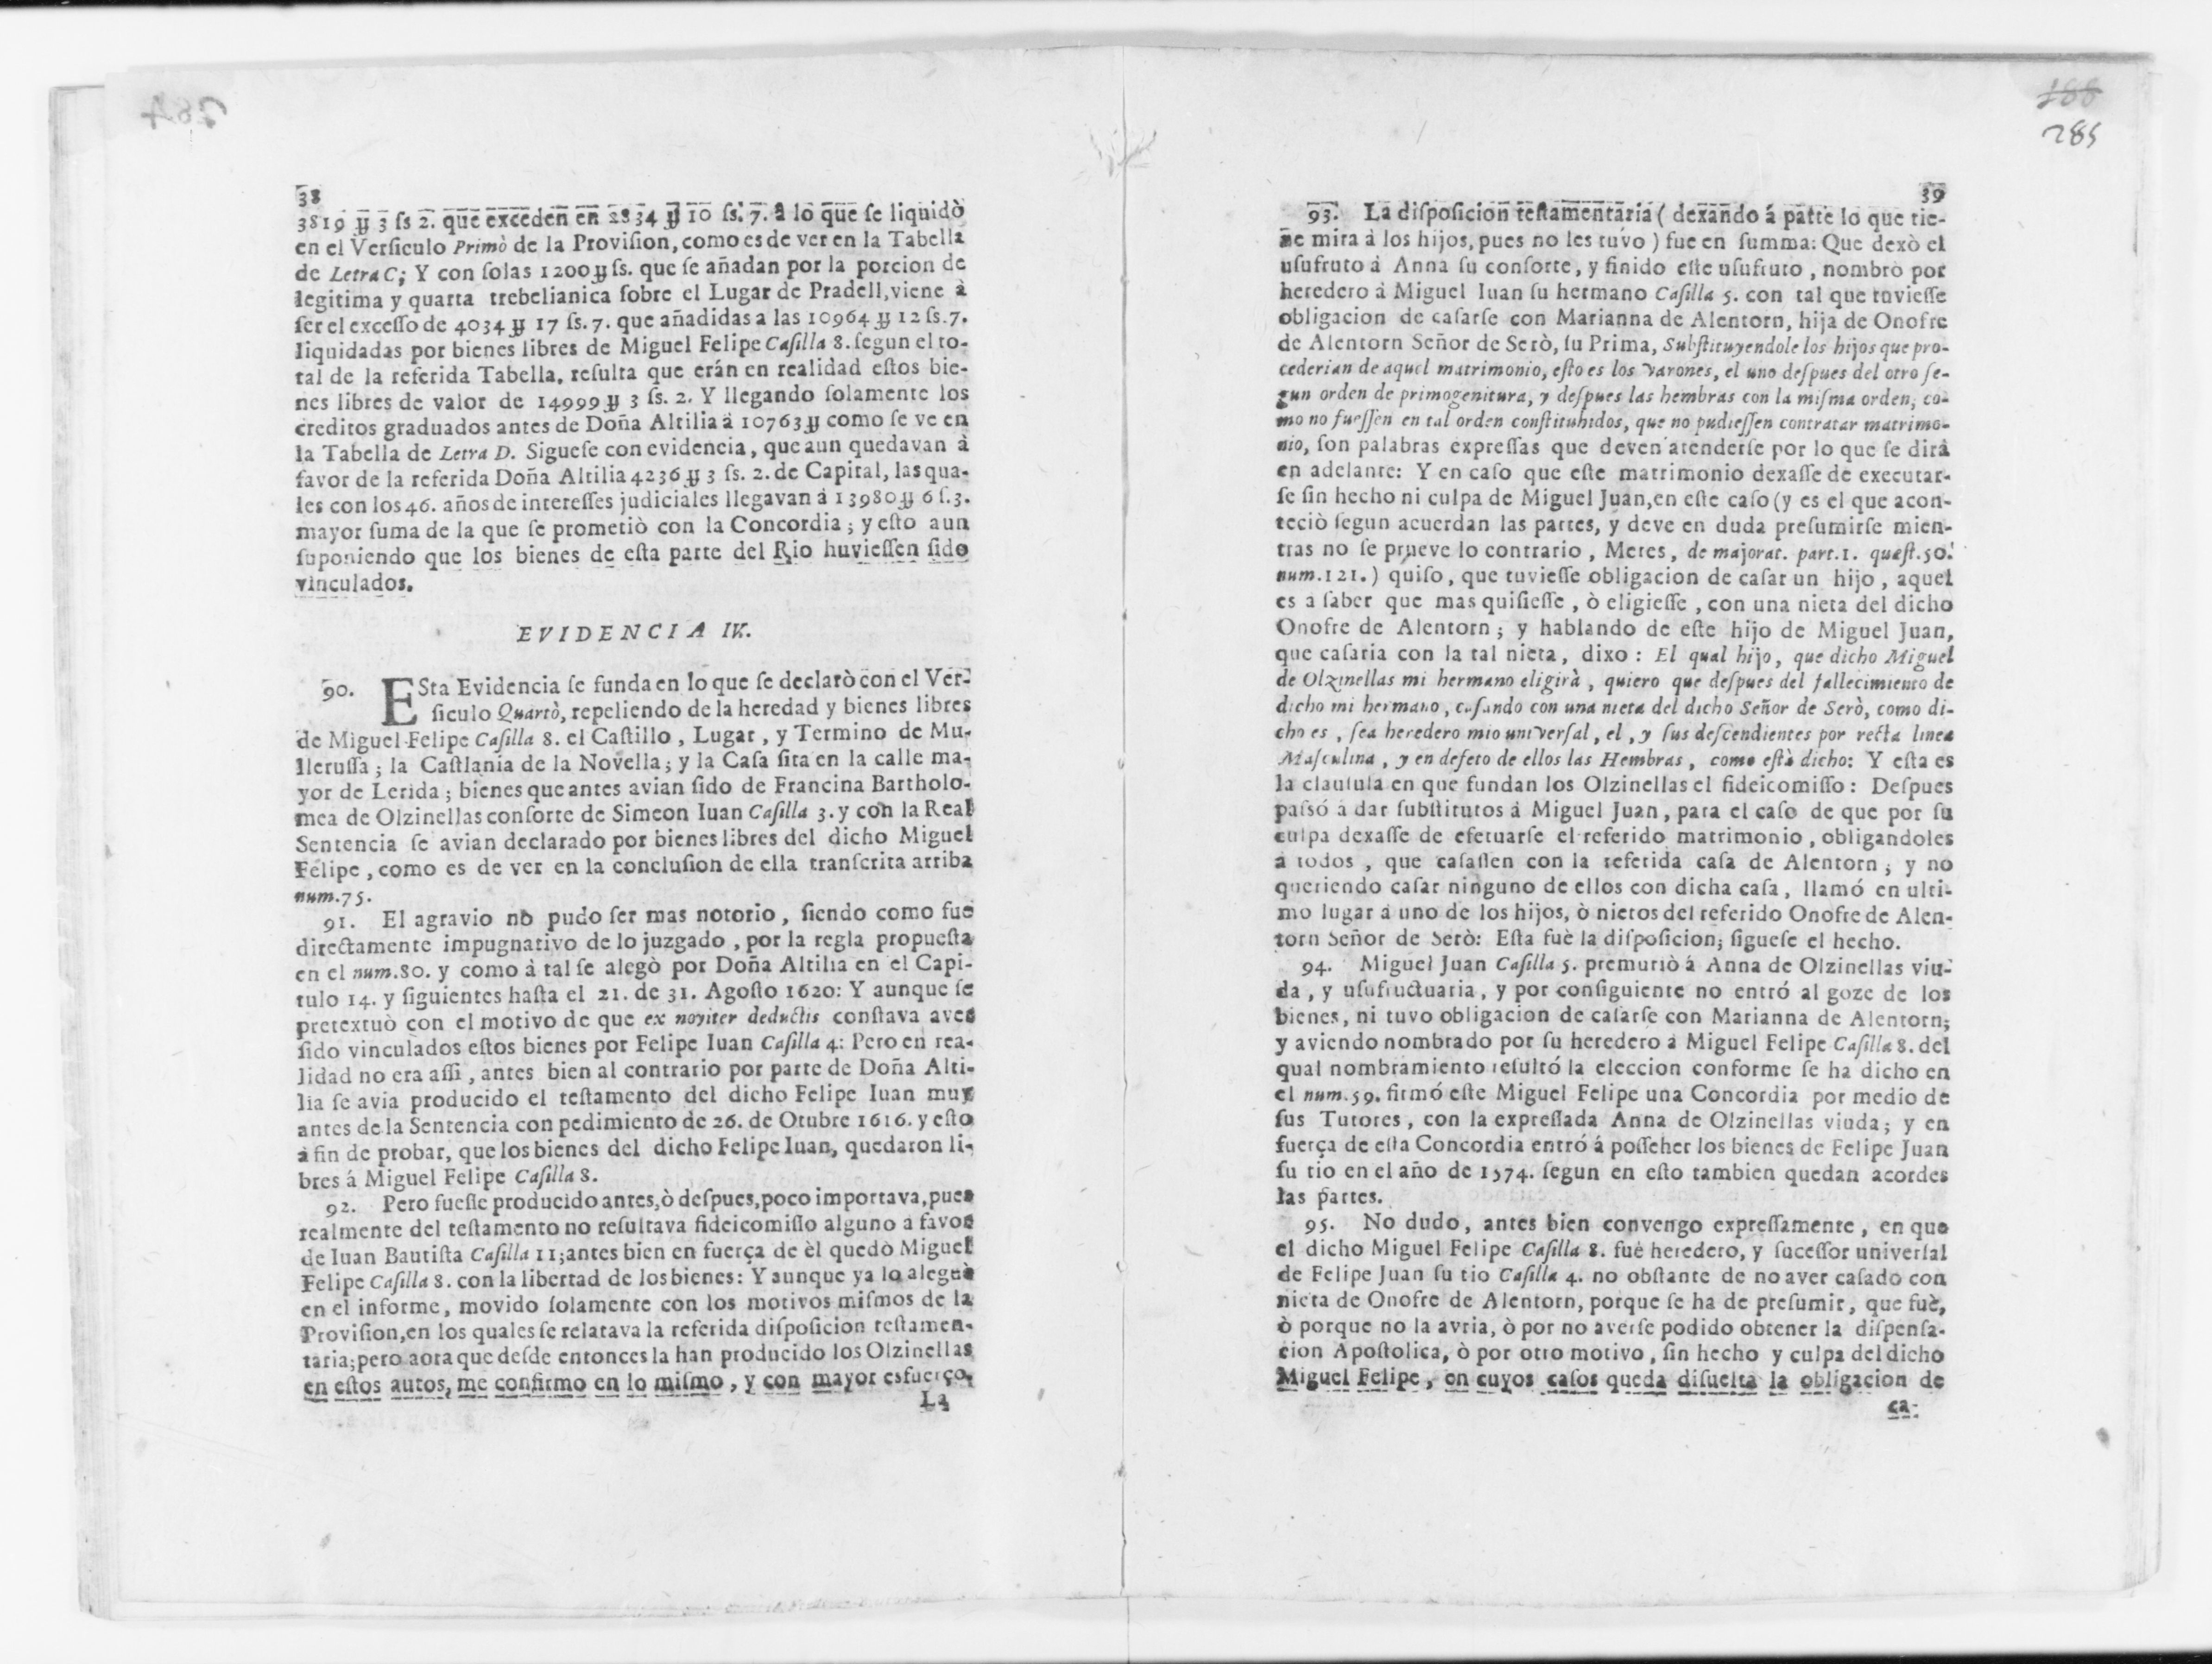 284
38
3819 ỹ 3 ſs 2. que exceden en 2834 ỹ 10 ſs. 7. a lo que ſe liquidò
en el Verſiculo Primò de la Proviſion, como es de ver en la Tabella
de Letra C; Y con ſolas 1200 ỹ ſs. que ſe añadan por la porcion de
legitima y quarta trebelianica ſobre el Lugar de Pradell, viene à
ſer el exceſſo de 4034 ỹ 17 ſs. 7. que añadidas a las 10964 ỹ 12 ſs. 7.
liquidadas por bienes libres de Miguel Felipe Caſilla 8. ſegun el to-
tal de la referida Tabella, reſulta que erán en realidad eſtos bie-
nes libres de valor de 14999 ỹ 3 ſs. 2. Y llegando ſolamente los
creditos graduados antes de Doña Altilia à 10763 ỹ como ſe ve en
la Tabella de Letra D. Sigueſe con evidencia, que aun quedavan à
favor de la referida Doña Altilia 4236 ỹ 3 ſs. 2. de Capital, las qua-
les con los 46. años de intereſſes judiciales llegavan á 13980 ỹ 6 ſ. 3.
mayor ſuma de la que ſe prometiò con la Concordia; y eſto aun
ſuponiendo que los bienes de eſta parte del Rio huvieſſen ſido
vinculados.
EVIDENCIA IV.
90. ESta Evidencia ſe funda en lo que ſe declarò con el Ver-
ſiculo Quartò, repeliendo de la heredad y bienes libres
de Miguel Felipe Caſilla 8. el Caſtillo, Lugar, y Termino de Mu-
lleruſſa; la Caſtlania de la Novella; y la Caſa ſita en la calle ma-
yor de Lerida; bienes que antes avian ſido de Francina Bartholo-
mea de Olzinellas conſorte de Simeon Iuan Caſilla 3. y con la Real
Sentencia ſe avian declarado por bienes libres del dicho Miguel
Felipe, como es de ver en la concluſion de ella tranſcrita arriba
num. 75.
91. El agravio no pudo ſer mas notorio, ſiendo como fue
directamente impugnativo de lo juzgado, por la regla propueſta
en el num. 80. y como à tal ſe alegò por Doña Altilia en el Capi-
tulo 14. y ſiguientes haſta el 21. de 31. Agoſto 1620: Y aunque ſe
pretextuò con el motivo de que ex noviter deductis conſtava aver
ſido vinculados eſtos bienes por Felipe Iuan Caſilla 4: Pero en rea-
lidad no era aſſi, antes bien al contrario por parte de Doña Alti-
lia ſe avia producido el teſtamento del dicho Felipe Iuan muy
antes de la Sentencia con pedimiento de 26. de Otubre 1616. y eſto
à fin de probar, que los bienes del dicho Felipe Iuan, quedaron li-
bres á Miguel Felipe Caſilla 8.
92. Pero fueſſe producido antes, ò deſpues, poco importava, pues
realmente del teſtamento no reſultava fideicomiſſo alguno a favor
de Iuan Bautiſta Caſilla 11; antes bien en fuerça de èl quedò Miguel
Felipe Caſilla 8. con la libertad de los bienes: Y aunque ya lo aleguè
en el informe, movido ſolamente con los motivos miſmos de la
Proviſion, en los quales ſe relatava la referida diſpoſicion teſtamen-
taria; pero aora que deſde entonces la han producido los Olzinellas
en eſtos autos, me confirmo en lo miſmo, y con mayor esfuerço.
La
188
285
39
93. La diſpoſicion teſtamentaria (dexando á parte lo que tie-
ne mira à los hijos, pues no les tuvo) fue en ſumma: Que dexò el
uſufruto à Anna ſu conſorte, y finido eſte uſufruto, nombrò por
heredero à Miguel Iuan ſu hermano Caſilla 5. con tal que tuvieſſe
obligacion de caſarſe con Marianna de Alentorn, hija de Onofre
de Alentorn Señor de Serò, ſu Prima, Subſtituyendole los hijos que pro-
cederian de aquel matrimonio, eſto es los varones, el uno deſpues del otro ſe-
gun orden de primogenitura, y deſpues las hembras con la miſma orden, co-
mo no fueſſen en tal orden conſtituhidos, que no pudieſſen contratar matrimo-
nio, ſon palabras expreſſas que deven atenderſe por lo que ſe dirà
en adelante: Y en caſo que eſte matrimonio dexaſſe de executar-
ſe ſin hecho ni culpa de Miguel Juan, en eſte caſo (y es el que acon-
teciò ſegun acuerdan las partes, y deve en duda preſumirſe mien-
tras no ſe prueve lo contrario, Meres, de majorat. part. 1. quæſt. 50.
num. 121.) quiſo, que tuvieſſe obligacion de caſar un hijo, aquel
es à ſaber que mas quiſieſſe, ò eligieſſe, con una nieta del dicho
Onofre de Alentorn; y hablando de eſte hijo de Miguel Juan,
que caſaria con la tal nieta, dixo: El qual hijo, que dicho Miguel
de Olzinellas mi hermano eligirà, quiero que deſpues del fallecimiento de
dicho mi hermano, caſando con una nieta del dicho Señor de Serò, como di-
cho es, ſea heredero mio univerſal, el, y ſus deſcendientes por recta linea
Maſculina, y en defeto de ellos las Hembras, como eſtà dicho: Y eſta es
la clauſula en que fundan los Olzinellas el fideicomiſſo: Deſpues
paſsó à dar ſubſtitutos à Miguel Juan, para el caſo de que por ſu
culpa dexaſſe de efetuarſe el referido matrimonio, obligandoles
à todos, que caſaſſen con la referida caſa de Alentorn; y no
queriendo caſar ninguno de ellos con dicha caſa, llamó en ulti-
mo lugar á uno de los hijos, ò nietos del referido Onofre de Alen-
torn Señor de Serò: Eſta fuè la diſpoſicion; ſigueſe el hecho.
94. Miguel Juan Caſilla 5. premuriò á Anna de Olzinellas viu-
da, y uſufructuaria, y por conſiguiente no entró al goze de los
bienes, ni tuvo obligacion de caſarſe con Marianna de Alentorn;
y aviendo nombrado por ſu heredero à Miguel Felipe Caſilla 8. del
qual nombramiento reſultó la eleccion conforme ſe ha dicho en
el num. 59. firmó eſte Miguel Felipe una Concordia por medio de
ſus Tutores, con la expreſſada Anna de Olzinellas viuda; y en
fuerça de eſta Concordia entró á poſſeher los bienes de Felipe Juan
ſu tio en el año de 1574. ſegun en eſto tambien quedan acordes
las partes.
95. No dudo, antes bien convengo expreſſamente, en que
el dicho Miguel Felipe Caſilla 8. fuè heredero, y ſuceſſor univerſal
de Felipe Juan ſu tio Caſilla 4. no obſtante de no aver caſado con
nieta de Onofre de Alentorn, porque ſe ha de preſumir, que fuè,
ò porque no la avria, ò por no averſe podido obtener la diſpenſa-
cion Apoſtolica, ò por otro motivo, ſin hecho y culpa del dicho
Miguel Felipe, en cuyos caſos queda diſuelta la obligacion de
ca-